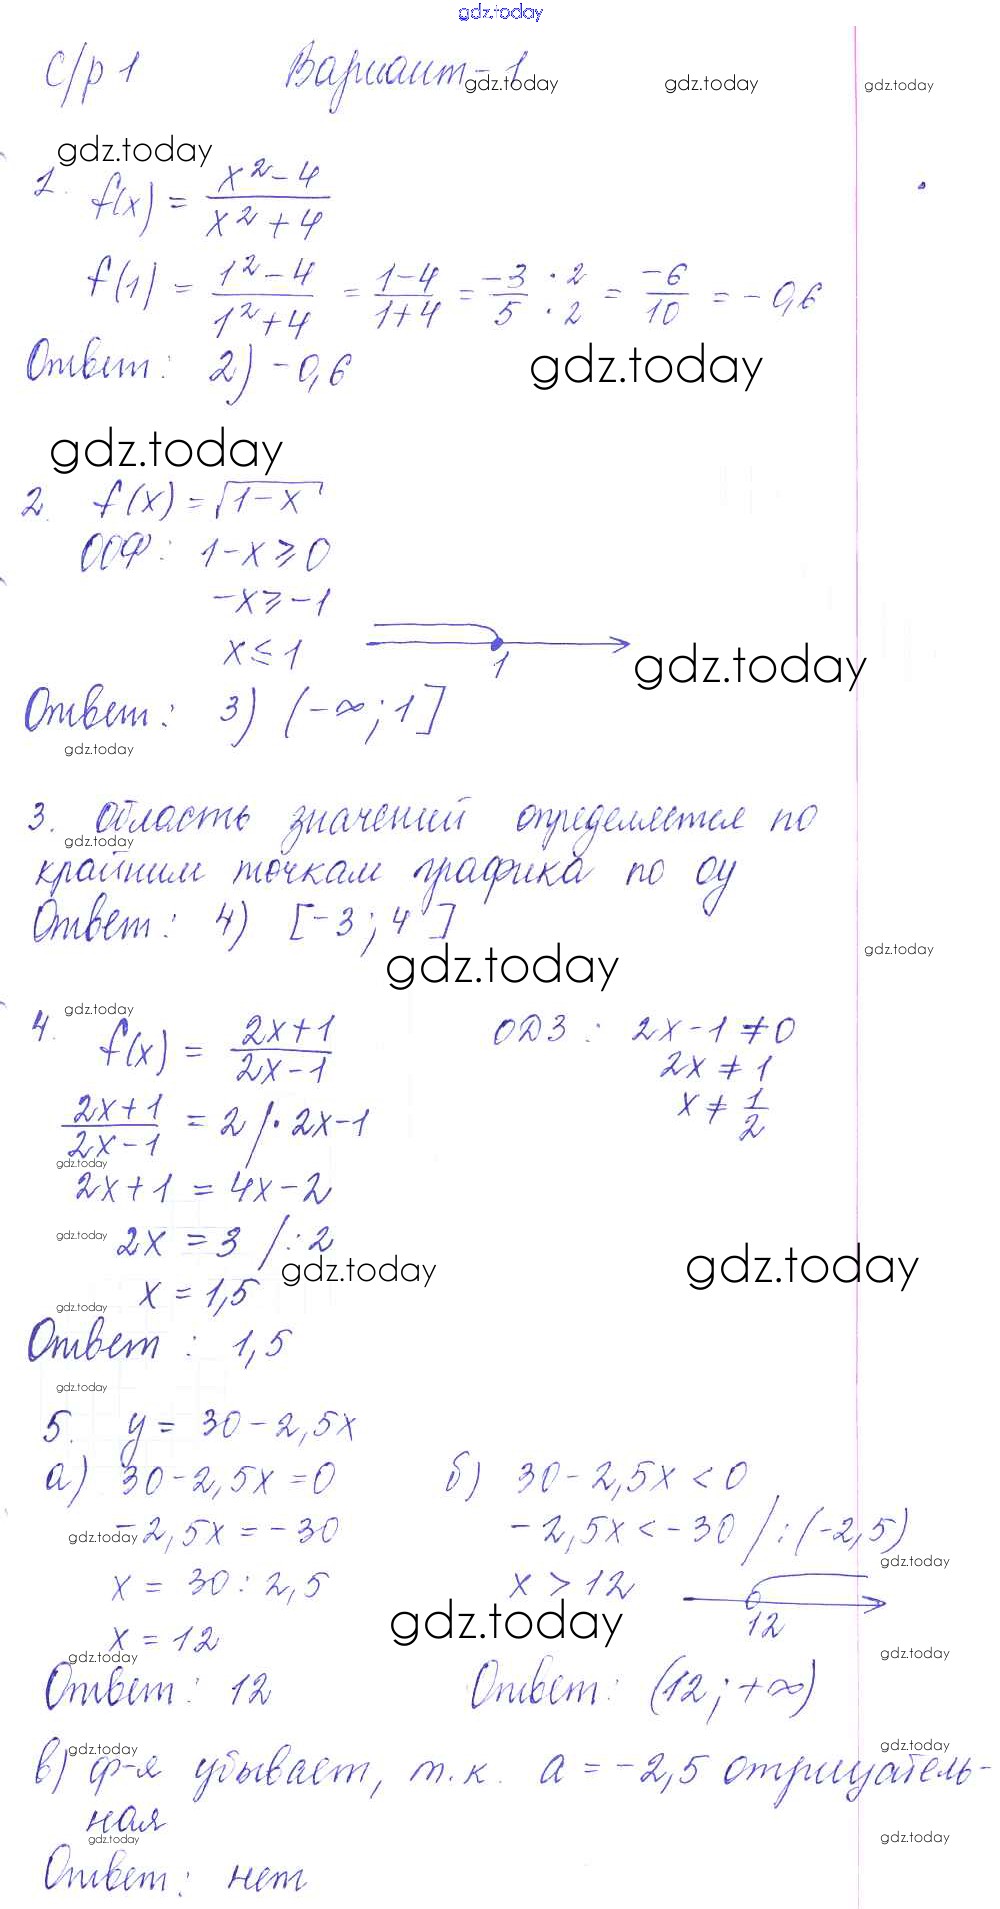 gdz.today
С/р 1 Вариант-1
gdz.today gdz.today gdz.today
gdz.today
1. f(x) = (x² - 4)/(x² + 4)
f(1) = (1² - 4)/(1² + 4) = (1-4)/(1+4) = (-3 · 2)/(5 · 2) = -6/10 = -0,6
Ответ: 2) -0,6
gdz.today
gdz.today
2. f(x) = √(1-x)
ООФ: 1-x ≥ 0
-x ≥ -1
x ≤ 1
1
gdz.today
Ответ: 3) (-∞; 1]
gdz.today
3. Область значений определяется по
gdz.today
крайним точкам графика по Оу
Ответ: 4) [-3; 4]
gdz.today
gdz.today
gdz.today
4. f(x) = (2x+1)/(2x-1) ОДЗ: 2x-1 ≠ 0
2x ≠ 1
x ≠ 1/2
(2x+1)/(2x-1) = 2 /· 2x-1
gdz.today
2x+1 = 4x-2
gdz.today
2x = 3 /: 2
gdz.today
gdz.today
x = 1,5
gdz.today
Ответ: 1,5
gdz.today
5. y = 30-2,5x
а) 30-2,5x = 0 б) 30-2,5x < 0
-2,5x = -30 -2,5x < -30 /: (-2,5)
gdz.today
gdz.today
x = 30 : 2,5 x > 12
12
gdz.today
x = 12
gdz.today
gdz.today
Ответ: 12 Ответ: (12; +∞)
gdz.today
gdz.today
в) ф-я убывает, т.к. a = -2,5 отрицатель-
ная
gdz.today
gdz.today
Ответ: нет